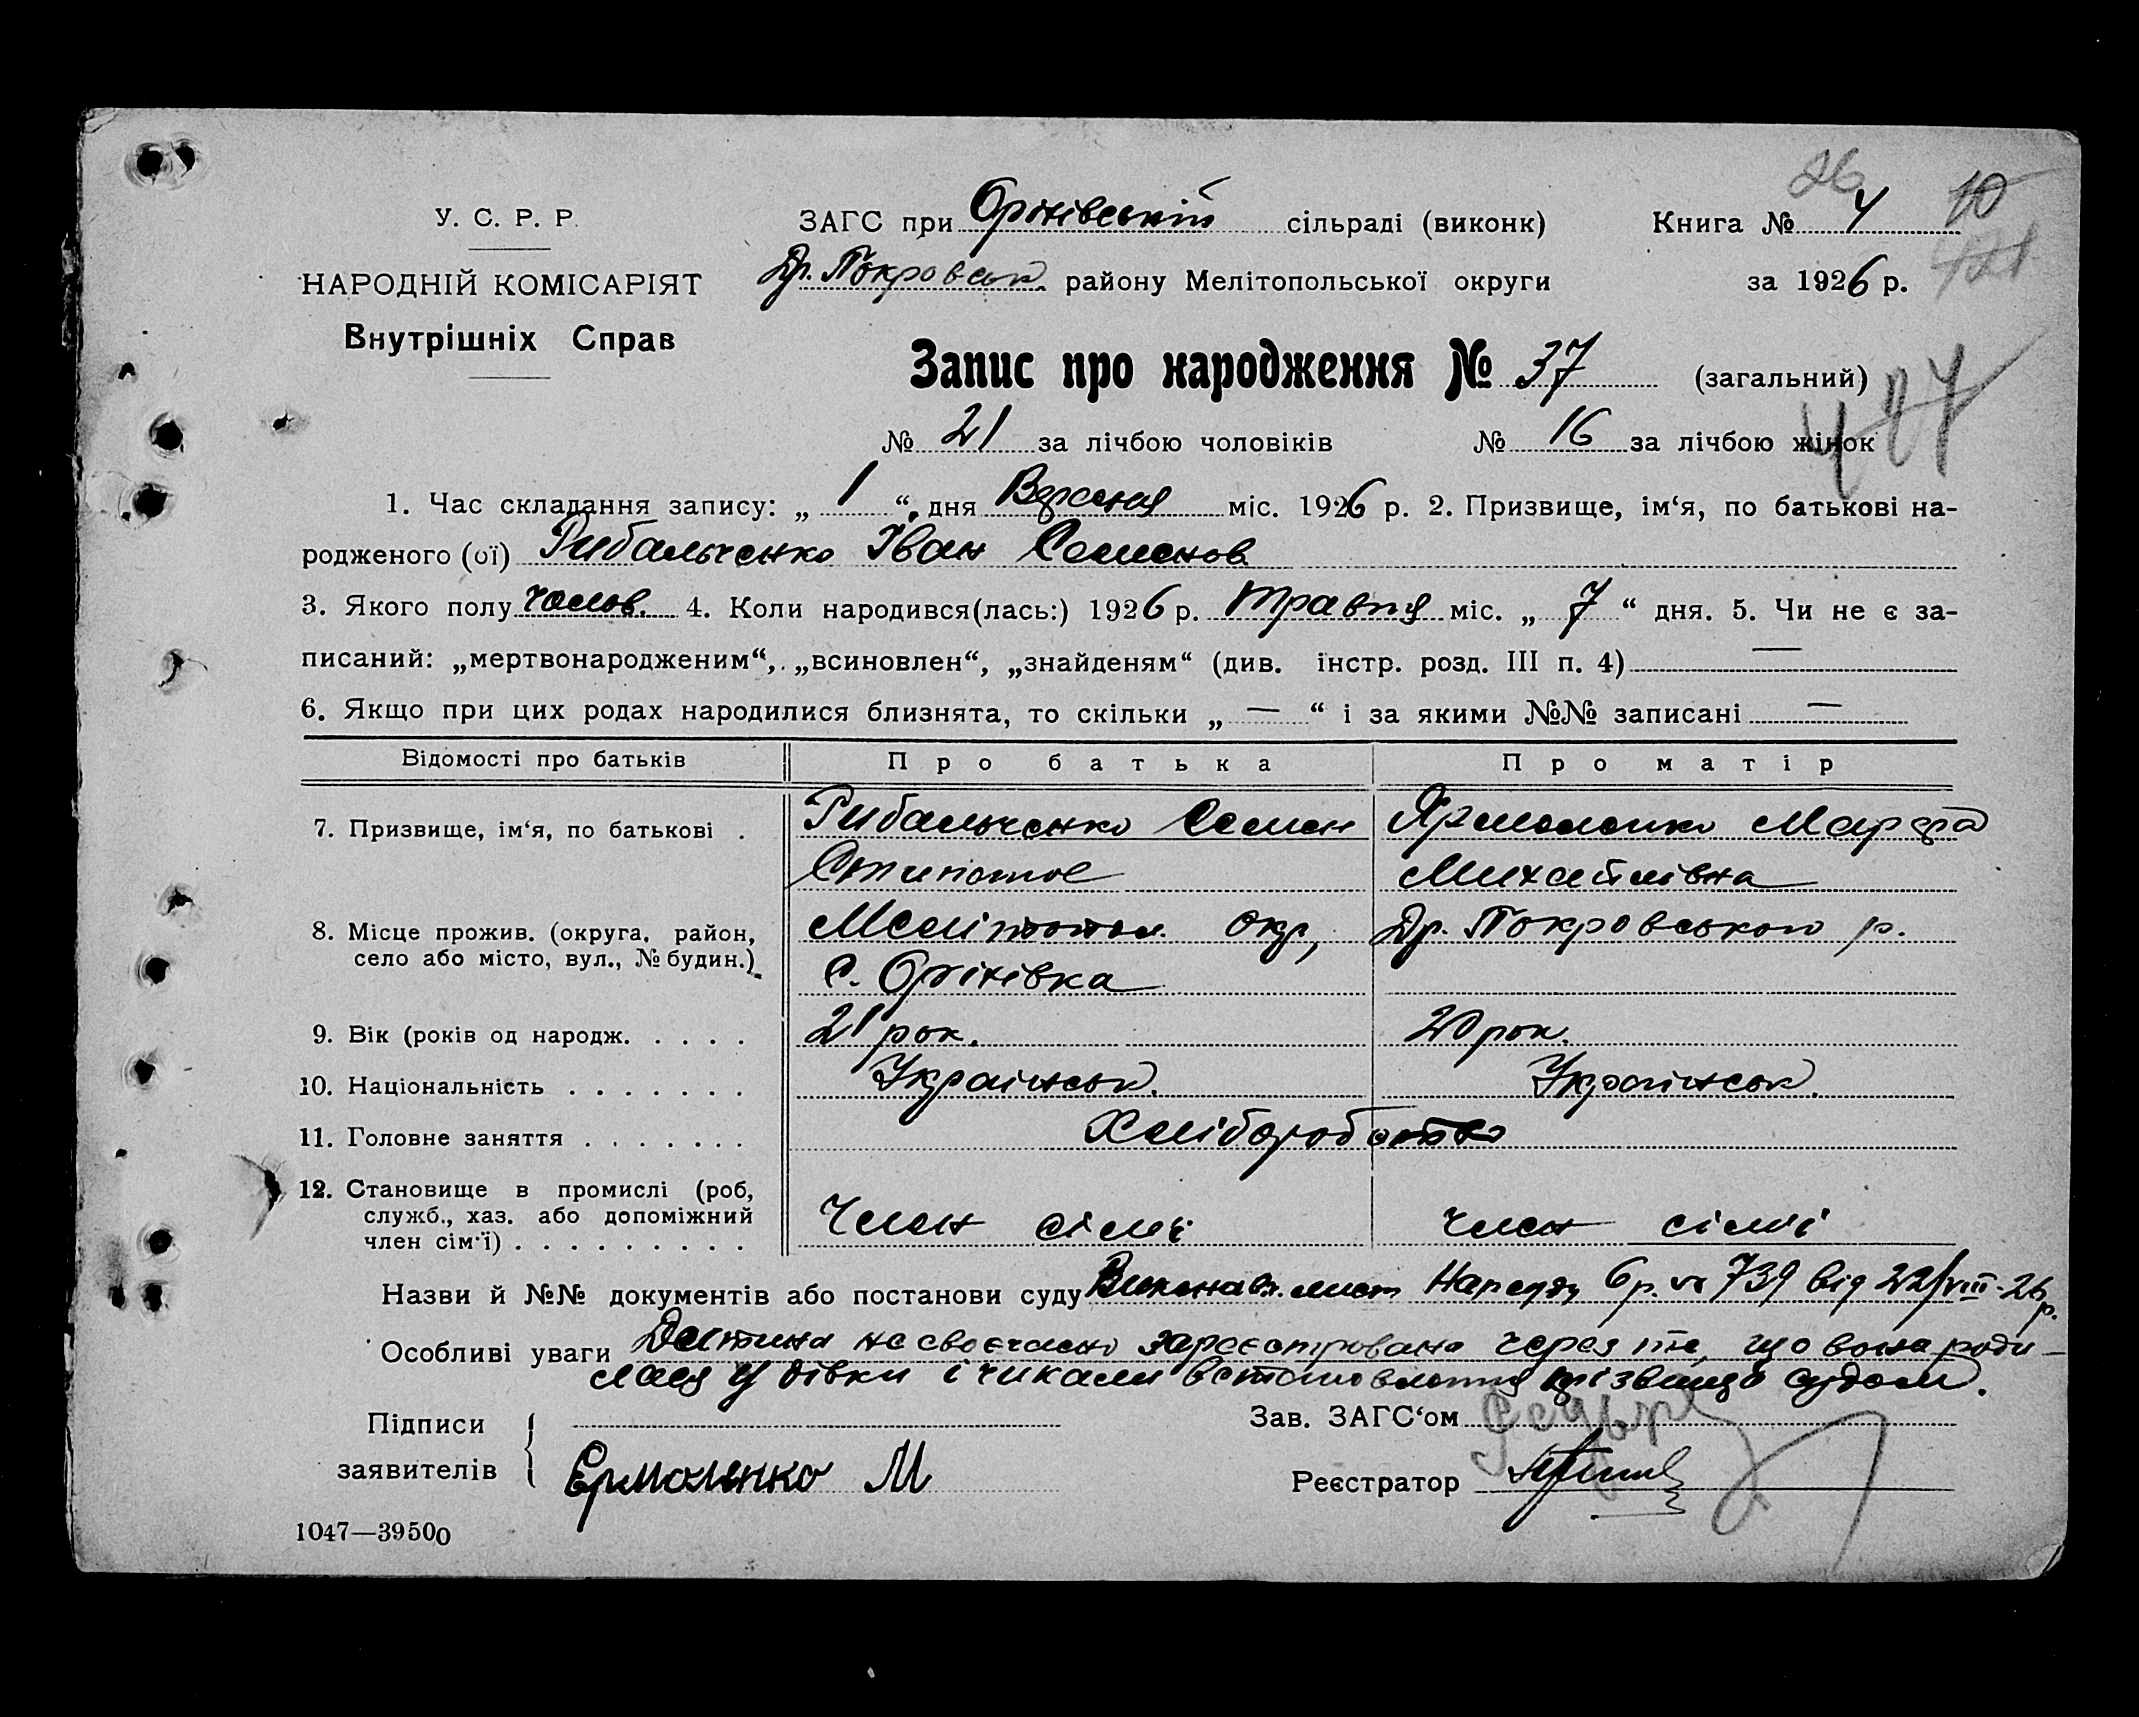 26
У. С. Р. Р.
ЗАГС при Оріхівській сільраді (виконк)
Книга № 4
10
НАРОДНІЙ КОМІСАРІЯТ
Др. Покровськ. району Мелітопольської округи
за 1926 р.
421
Внутрішніх Справ
Запис про народження № 37 (загальний)
427
№ 21 за лічбою чоловіків № 16 за лічбою жінок
1. Час складання запису: „ 1 “ дня Вересня міс. 1926 р. 2. Призвище, ім‘я, по батькові на-
родженого (ої) Рибальченко Іван Семенов
3. Якого полу чолов. 4. Коли народився(лась:) 1926 р. травня міс. „ 7 “ дня. 5. Чи не є за-
писаний: „мертвонародженим“, „всиновлен“, „знайденям“ (див. інстр. розд. III п. 4) —
6. Якщо при цих родах народилися близнята, то скільки „ — “ і за якими №№ записані —
Відомості про батьків Про батька Про матір
7. Призвище, ім‘я, по батькові . Рибальченко Семен Ярмоленко Марфа
Михайлівна
8. Місце прожив. (округа, район, Мелітопол. окр, Др. Покровського р.
село або місто, вул., № будин.) с. Оріхівка
9. Вік (років од народж. . . . . 21 рок. 20 рок.
10. Національність . . . . . . . Українськ. Українськ.
11. Головне заняття . . . . . . . Хліборобство
12. Становище в промислі (роб,
служб., хаз. або допоміжний Член сімї член сімї
член сім‘ї) . . . . . . . . .
Назви й №№ документів або постанови суду Виконавч. лист Нарсуду 6 р. № 739 від 22/VIII-26 р.
Особливі уваги Дитина не своєчасно зареєстрована через те, що вона роди-
лася у дівки і чикали встановлення прізвища судом.
Підписи
заявителів
Зав. ЗАГС‘ом
Єрмоленко М
Реєстратор
1047—39500